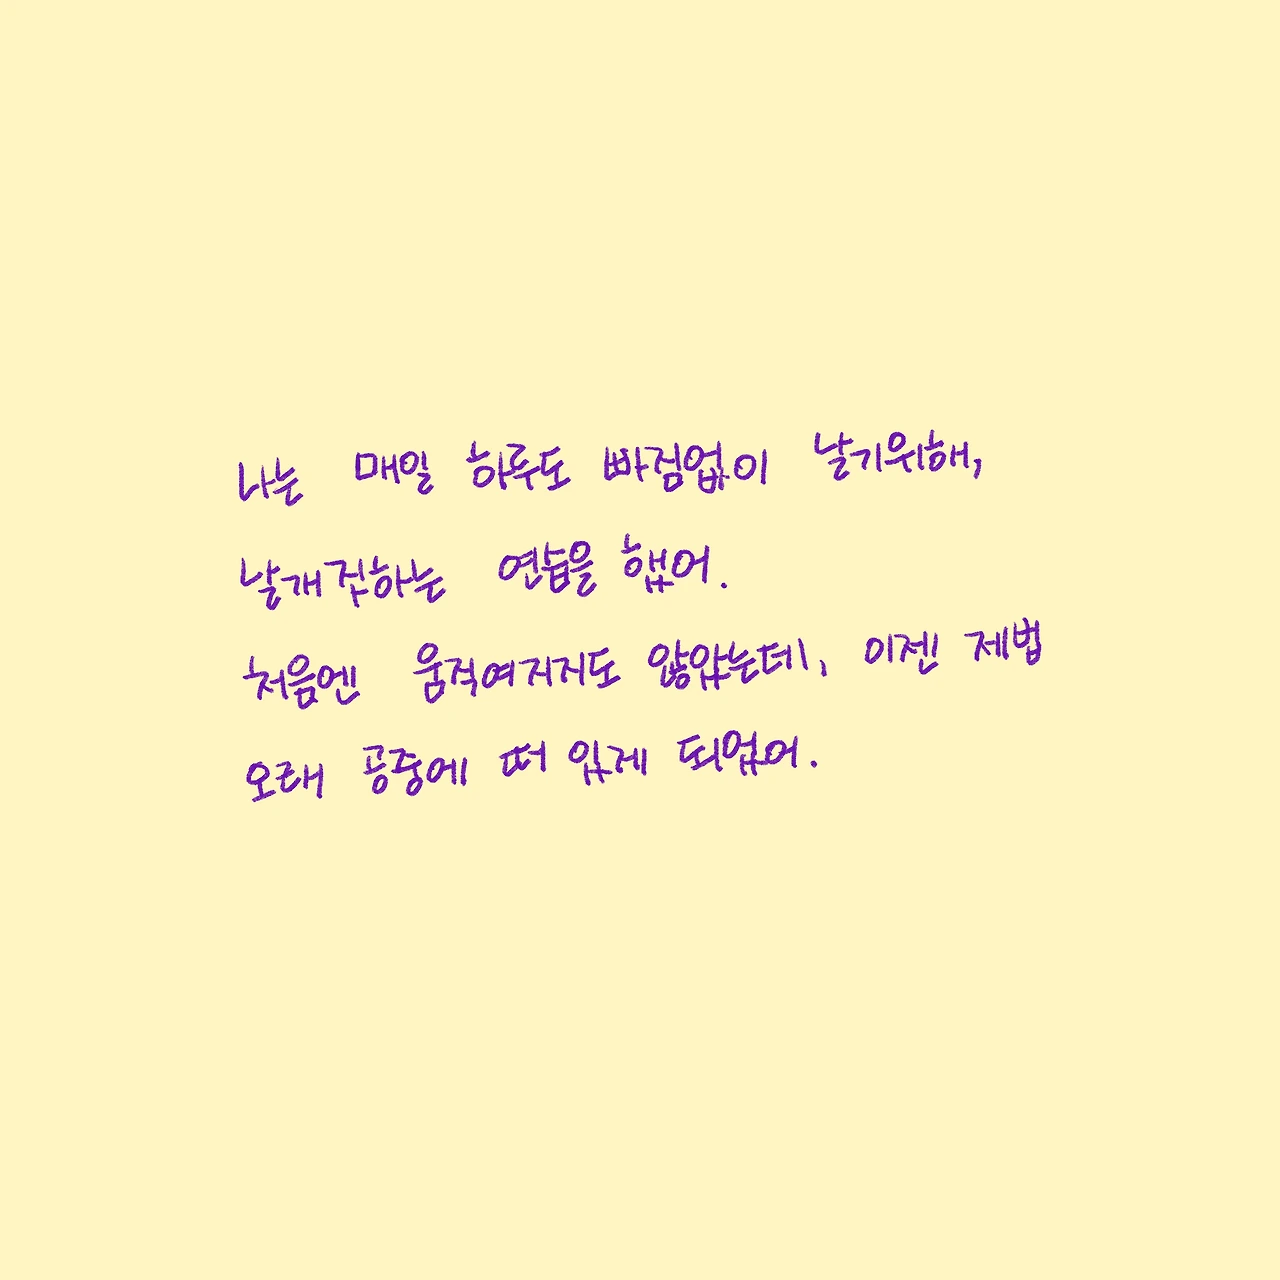 나는 매일 하루도 빠점없이 날기위해,
날개짓하는 연습을 했어.
처음엔 움직여지지도 않았는데, 이젠 제법
오래 공중에 떠 있게 되었어.